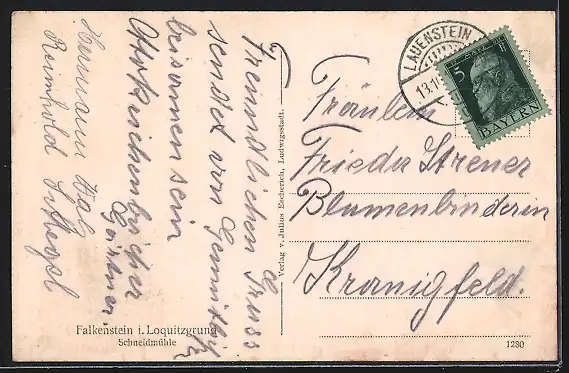 Freundlichen Gruss
sendet von Gemütlich
beisamensein
Gärtner
Hermann
Reinhold
Falkenstein i. Loquitzgrund
Schneidmühle
Verlag v. Julius Escherich, Ludwigsstadt.
LAUENSTEIN
13.1
5
BAYERN
Fräulein
Frieda Strener
Blumenbinderin
Kranigfeld.
1280